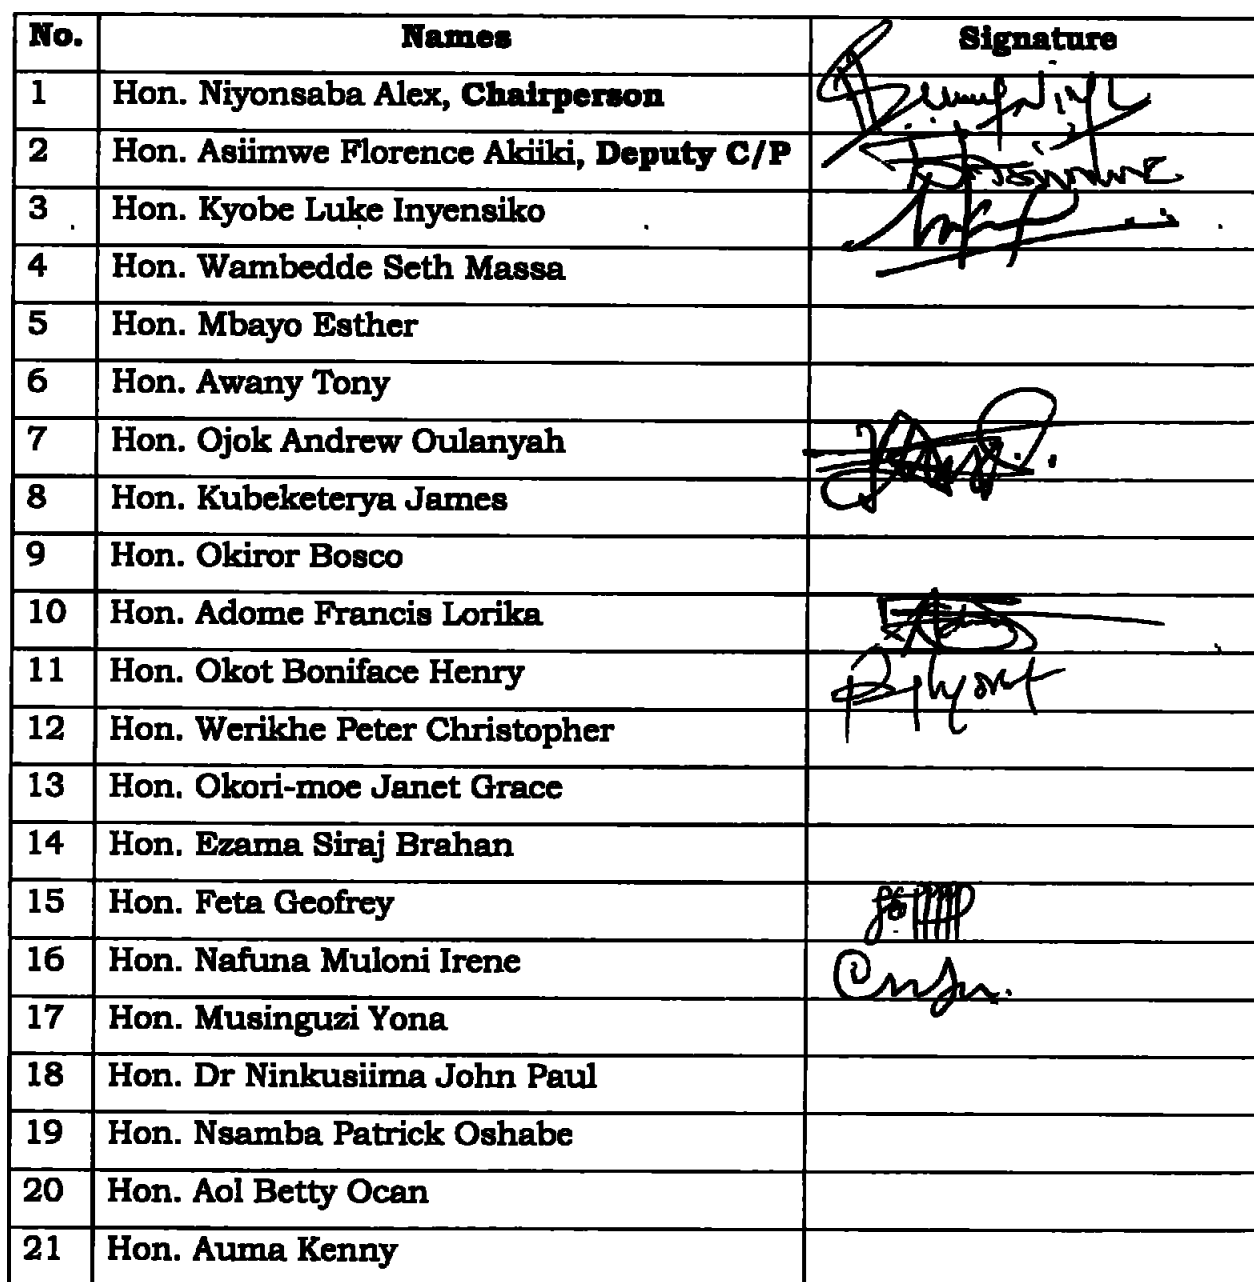 No. Names Signature
1 Hon. Niyonsaba Alex, Chairperson
2 Hon. Asiimwe Florence Akiiki, Deputy C/P
3 Hon. Kyobe Luke Inyensiko
4 Hon. Wambedde Seth Massa
5 Hon. Mbayo Esther
6 Hon. Awany Tony
7 Hon. Ojok Andrew Oulanyah
8 Hon. Kubeketerya James
9 Hon. Okiror Bosco
10 Hon. Adome Francis Lorika
11 Hon. Okot Boniface Henry
12 Hon. Werikhe Peter Christopher
13 Hon. Okori-moe Janet Grace
14 Hon. Ezama Siraj Brahan
15 Hon. Feta Geofrey
16 Hon. Nafuna Muloni Irene
17 Hon. Musinguzi Yona
18 Hon. Dr Ninkusiima John Paul
19 Hon. Nsamba Patrick Oshabe
20 Hon. Aol Betty Ocan
21 Hon. Auma Kenny